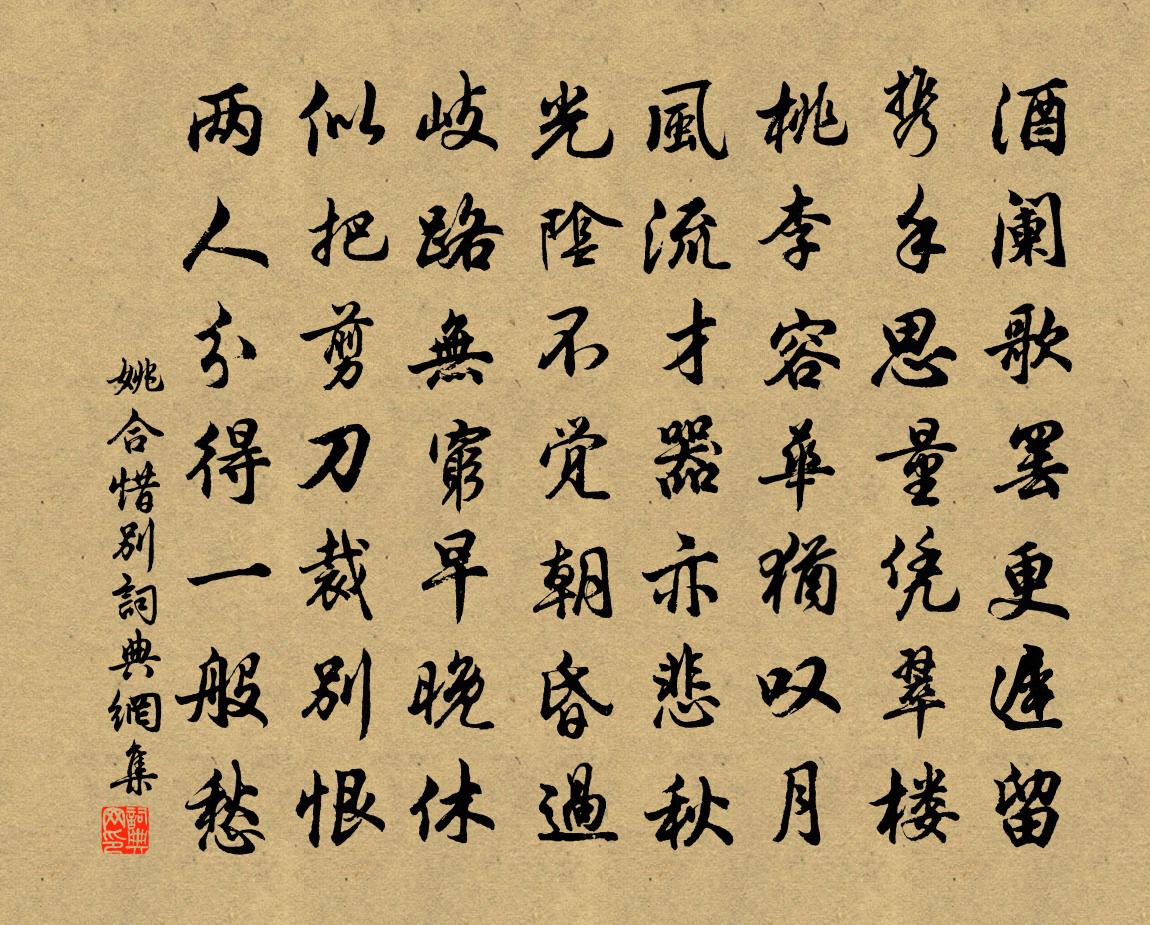 酒阑歌罢更迟留
携手思量凭翠楼
桃李容华犹叹月
風流才器亦悲秋
光陰不觉朝昏過
岐路無窮早晚休
似把剪刀裁别恨
两人分得一般愁
姚合惜别詞典網集
詞典网印